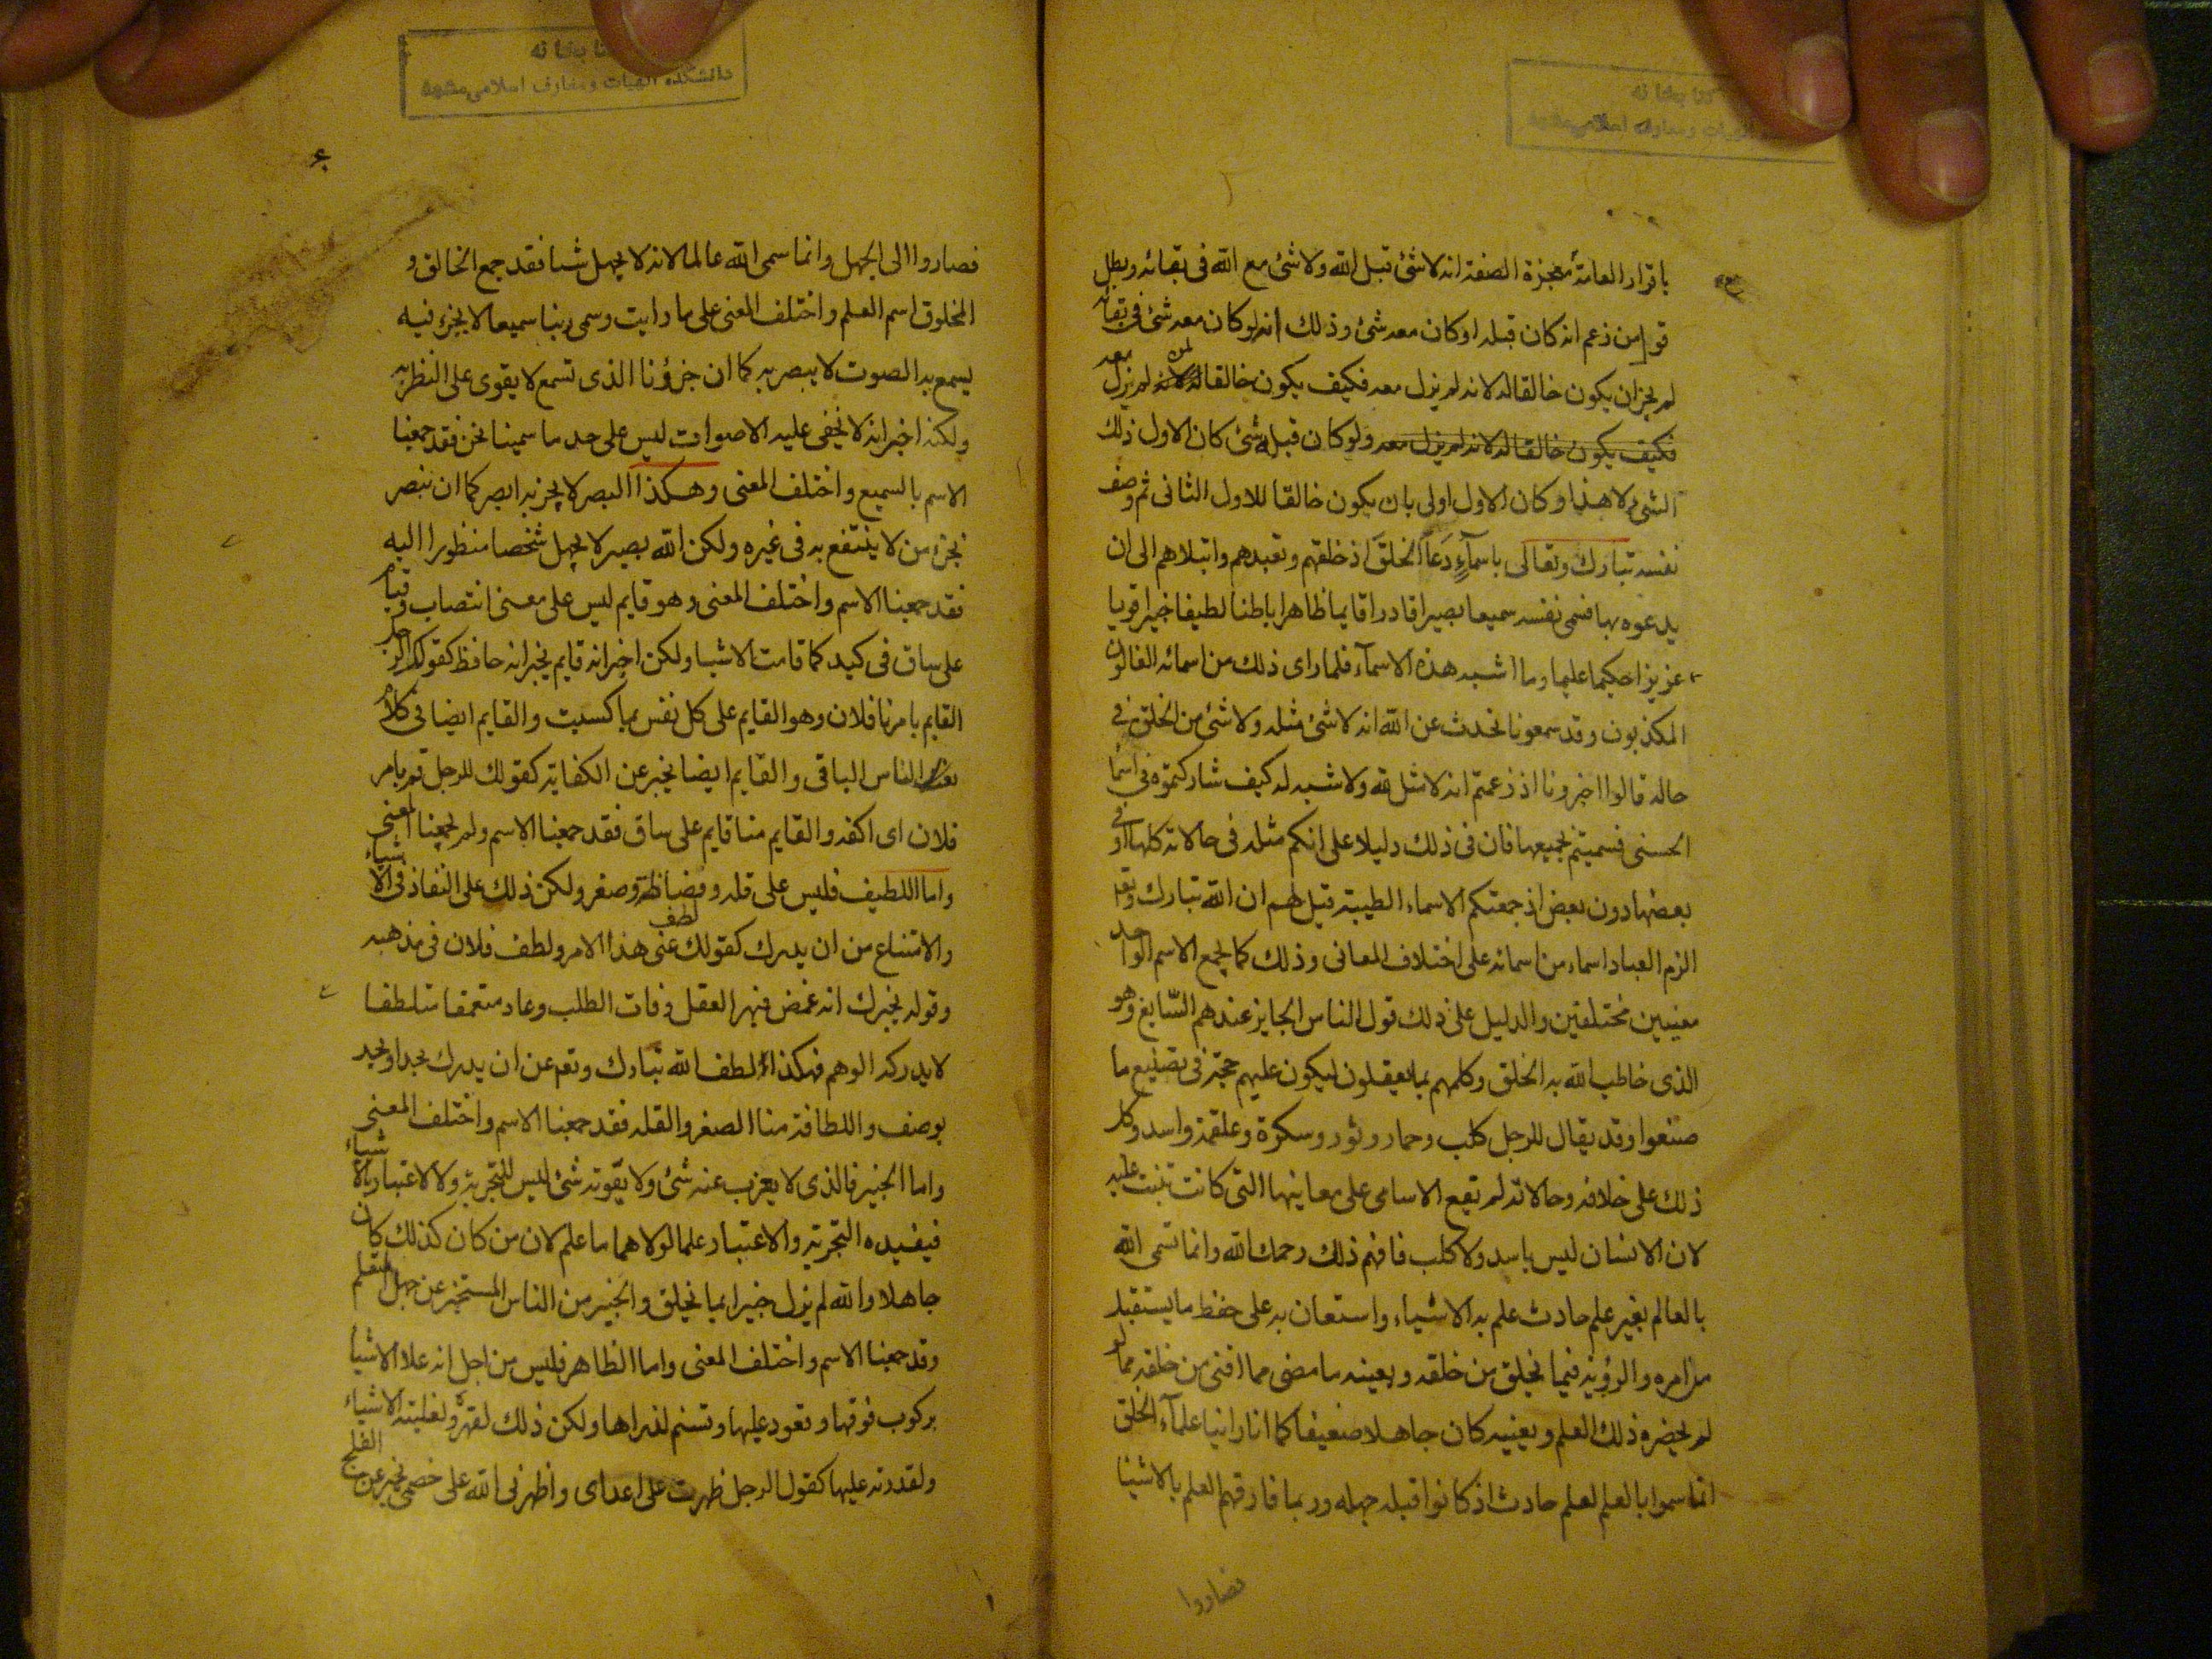 باقرار العامة معجزة الصفة انه لا شئ قبل الله ولا شئ مع الله فى بقائه وبطل
قول من زعم انه كان قبله او كان معه شئ وذلك انه لو كان معه شئ فى بقائه
لم يجز ان يكون خالقا له لانه لم يزل معه فكيف يكون خالقا لمن لم يزل معه
فكيف يكون خالقا له لانه لم يزل معه ولو كان قبله شئ كان الاول ذلك
الشئ لا هذا وكان الاول اولى بان يكون خالقا للاول الثانى ثم وصف
نفسه تبارك وتعالى باسمآءٍ دَعَا الخلقَ اذ خلقهم وتعبدهم وابتلاهم الى ان
يدعوه بها فسمى نفسه سميعا بصيرا قادرا قايما ظاهرا باطنا لطيفا خبيرا قويا
عزيزا حكيما عليما وما اشبه هذه الاسمآء فلما راى ذلك من اسمائه الغالون
المكذبون وقد سمعونا نحدث عن الله انه لا شئ مثله ولا شئ من الخلق فى
حاله قالوا اخبرونا اذ زعمتم انه لا مثل لله ولا شبه له كيف شاركتموه فى اسمائه
الحسنى فسميتم بجميعها فان فى ذلك دليلا على انكم مثله فى حالاته كلها او فى
بعضها دون بعض اذ جمعتكم الاسماء الطيبة قيل لهم ان الله تبارك وتعـ
الزم العباد اسماء من اسمائه على اختلاف المعانى وذلك كما يجمع الاسم الواحد
معنيين مختلفين والدليل على ذلك قول الناس الجايز عندهم السّايغ وهو
الذى خاطب الله به الخلق وكلمهم بما يعقلون ليكون عليهم حجة فى تضييع ما
ضيعوا وقد يقال للرجل كلب وحمار وثور وسكرة وعلقمة واسد وكل
ذلك على خلافه وحالاته لم تقع الاسامى على معاينها التى كانت بنيت عليه
لان الانسان ليس باسد ولا كلب فافهم ذلك رحمك الله وانما تسمى الله
بالعالم بغير علم حادث علم به الاشياء واستعان به على حفظ ما يستقبل
من امره والرؤية فيما يخلق من خلقه وبعينه ما مضى مما افنى من خلقه مما لو
لم يحضره ذلك العلم ويعينه كان جاهلا ضعيفا كما انا راينا علمآء الخلق
انما سموا بالعلم لعلم حادث اذ كانوا قبله جهله وربما فارقهم العلم بالاشيا
فصاروا
كتابخانه
دانشكده الهيات ومعارف اسلامى مشهد
فصاروا الى الجهل وانما سمى الله عالما لانه لا يجهل شيا فقد جمع الخالق و
المخلوق اسم العلم واختلف المعنى على ما رايت وسمى ربنا سميعا لا بجزء فيه
يسمع به الصوت لا يبصر به كما ان جزؤنا الذى نسمع لا يقوى على النظر به
ولكنه اخبر انه لا يخفى عليه الاصوات ليس على حد ما سمينا نحن فقد جمعنا
الاسم بالسميع واختلف المعنى وهكذا البصر لا بجزء به ابصر كما ان نبصر
بجزء من لا ينتفع به فى غيره ولكن الله بصير لا يجهل شخصا منظورا اليه
فقد جمعنا الاسم واختلف المعنى وهو قايم ليس على معنى انتصاب وقيام
على ساق فى كبد كما قامت الاشيا ولكن اخبر انه قايم يخبر انه حافظ كقولك الرجل
القايم بامرنا فلان وهو القايم على كل نفس بما كسبت والقايم ايضا فى كلام
الناس الباقى والقايم ايضا يخبر عن الكفاية كقولك للرجل قم بامر
فلان اى اكفه والقايم منا قايم على ساق فقد جمعنا الاسم ولم يجمعنا المعنى
واما اللطيف فليس على قله وقضافة وصغر ولكن ذلك على النفاذ فى الاشياء
والامتناع من ان يدرك كقولك لطف عنى هذا الامر ولطف فلان فى مذهبه
وقوله يخبرك انه غمض فبهر العقل وفات الطلب وعاد متعمقا متلطفا
لا يدركه الوهم فهكذا لطف الله تبارك وتعـ عن ان يدرك بحد او يحد
بوصف واللطافة منا الصغر والقله فقد جمعنا الاسم واختلف المعنى
واما الخبير فالذى لا يعزب عنه شئ ولا يفوته شئ ليس للتجربة ولا لاعتبار بالاشياء
فيفيده التجربة والاعتبار علما لولاهما ما علم لان من كان كذلك كان
جاهلا والله لم يزل خبيرا بما يخلق والخبير من الناس المستخبر عن جهل المتعلم
وقد جمعنا الاسم واختلف المعنى واما الظاهر فليس من اجل انه علا الاشيا
بركوب فوقها وقعود عليها وتسنم لذراها ولكن ذلك لقهره ولغلبته الاشياء
ولقدرته عليها كقول الرجل ظهرت على اعداى واظهرنى الله على خصمى يخبر عن الفلج